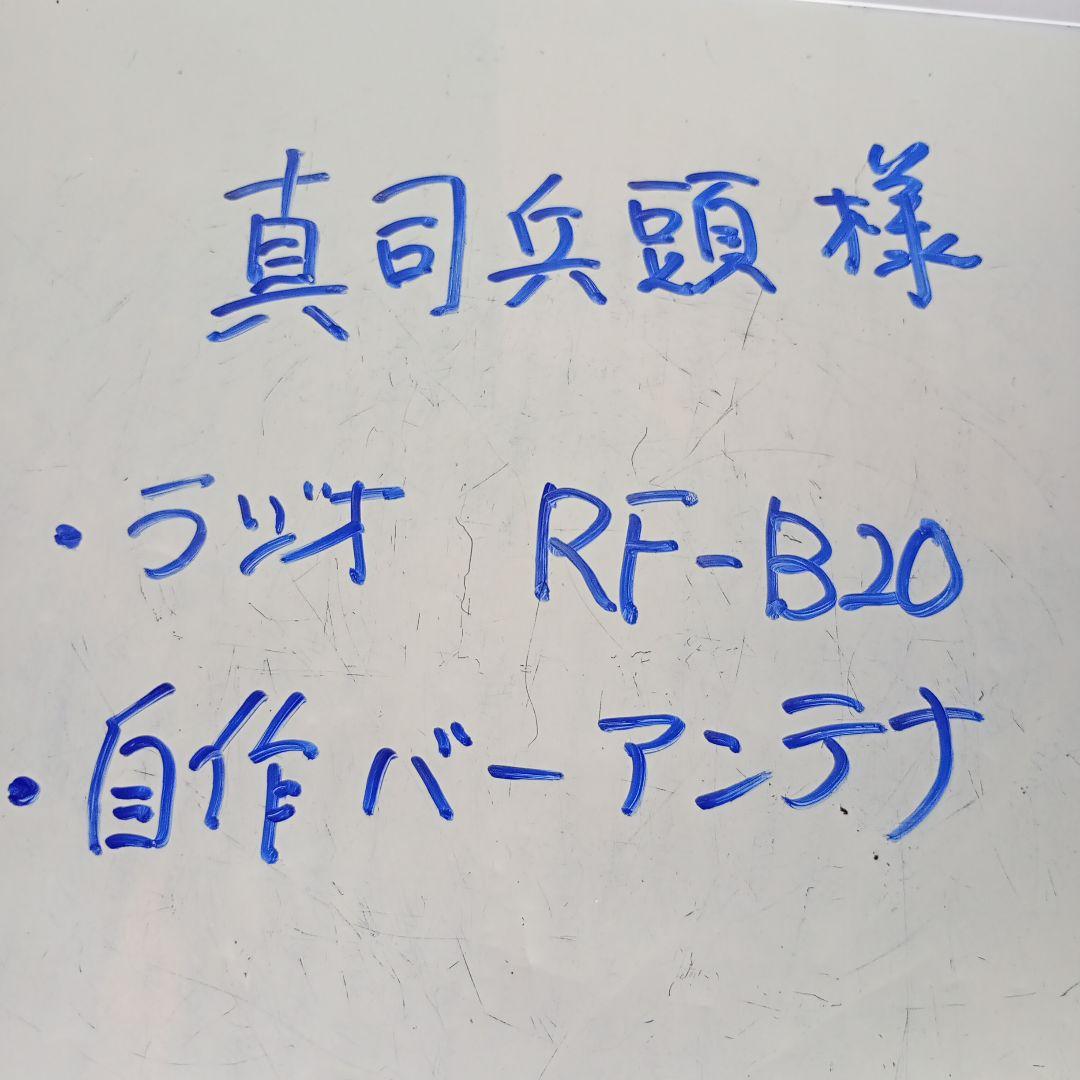 真司兵頭様
・ラジオ RF-B20
・自作バーアンテナ